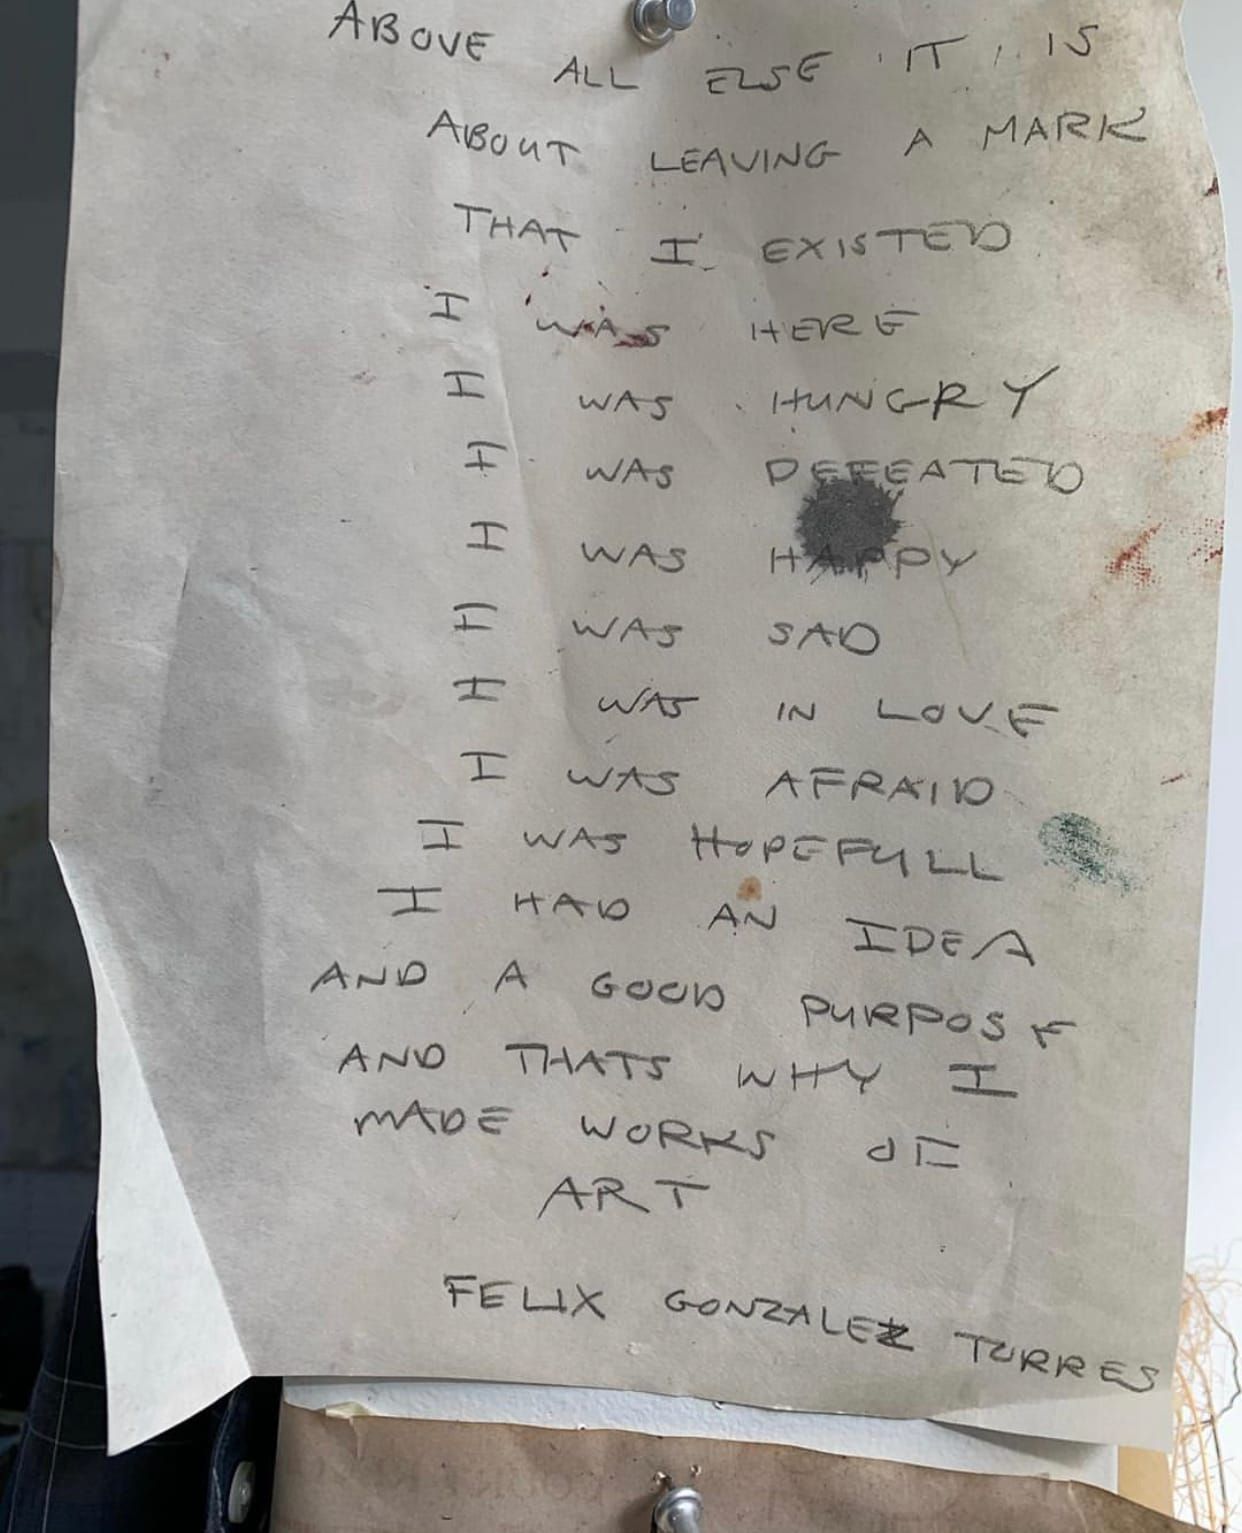 ABOVE ALL ELSE IT IS
ABOUT LEAVING A MARK
THAT I EXISTED
I WAS HERE
I WAS HUNGRY
I WAS DEFEATED
I WAS HAPPY
I WAS SAD
I WAS IN LOVE
I WAS AFRAID
I WAS HOPEFULL
I HAD AN IDEA
AND A GOOD PURPOSE
AND THATS WHY I
MADE WORKS OF
ART
FELIX GONZALEZ TORRES